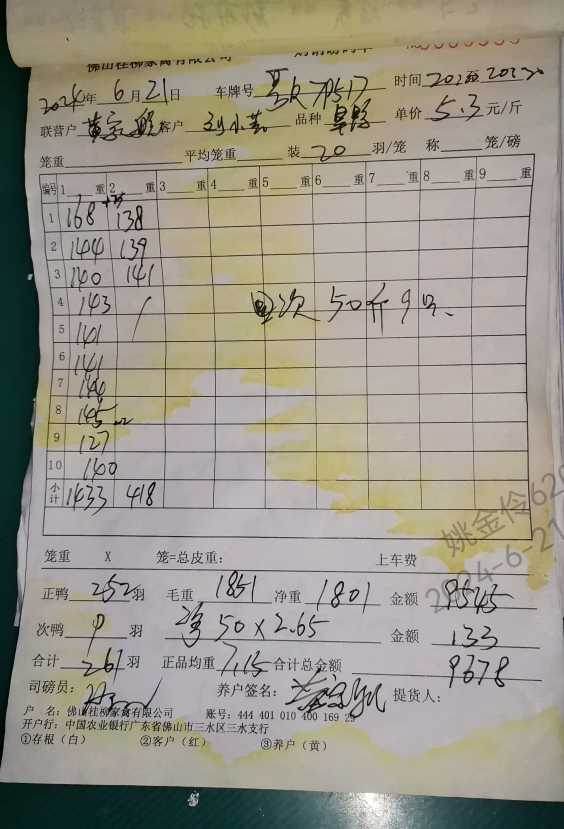 佛山桂柳家禽有限公司
2024年 6月 21日 车牌号 时间
联营户 客户 刘小 品种 单价 5.3 元/斤
笼重 平均笼重 装 20 羽/笼 称 笼/磅
编号 1 重 2 重 3 重 4 重 5 重 6 重 7 重 8 重 9 重
1 168 138
2 144 139
3 140 141
4 143
次 50斤 9只
5 141
6 141
7 144
8 145
9 127
10 140
小计 1433 418
笼重 X 笼=总皮重: 上车费
姚金伶
2024-6-21
正鸭 252 羽 毛重 1851 净重 1801 金额 9545
次鸭 9 羽 50×2.65 金额 133
合计 261 羽 正品均重 7.15 合计总金额 9678
司磅员: 养户签名: 提货人:
户 名: 佛山桂柳家禽有限公司 账号: 444 401 010 400 169 25
开户行: 中国农业银行广东省佛山市三水区三水支行
①存根(白) ②客户(红) ③养户(黄)